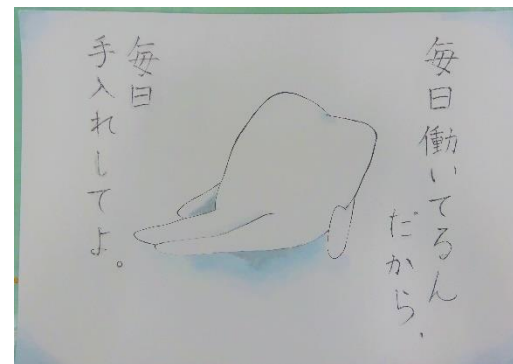 毎日働いてるん
だから、
毎日
手入れしてよ。